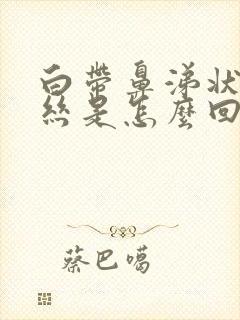 白帶鼻涕狀
絲是怎麼回
蔡巴噶